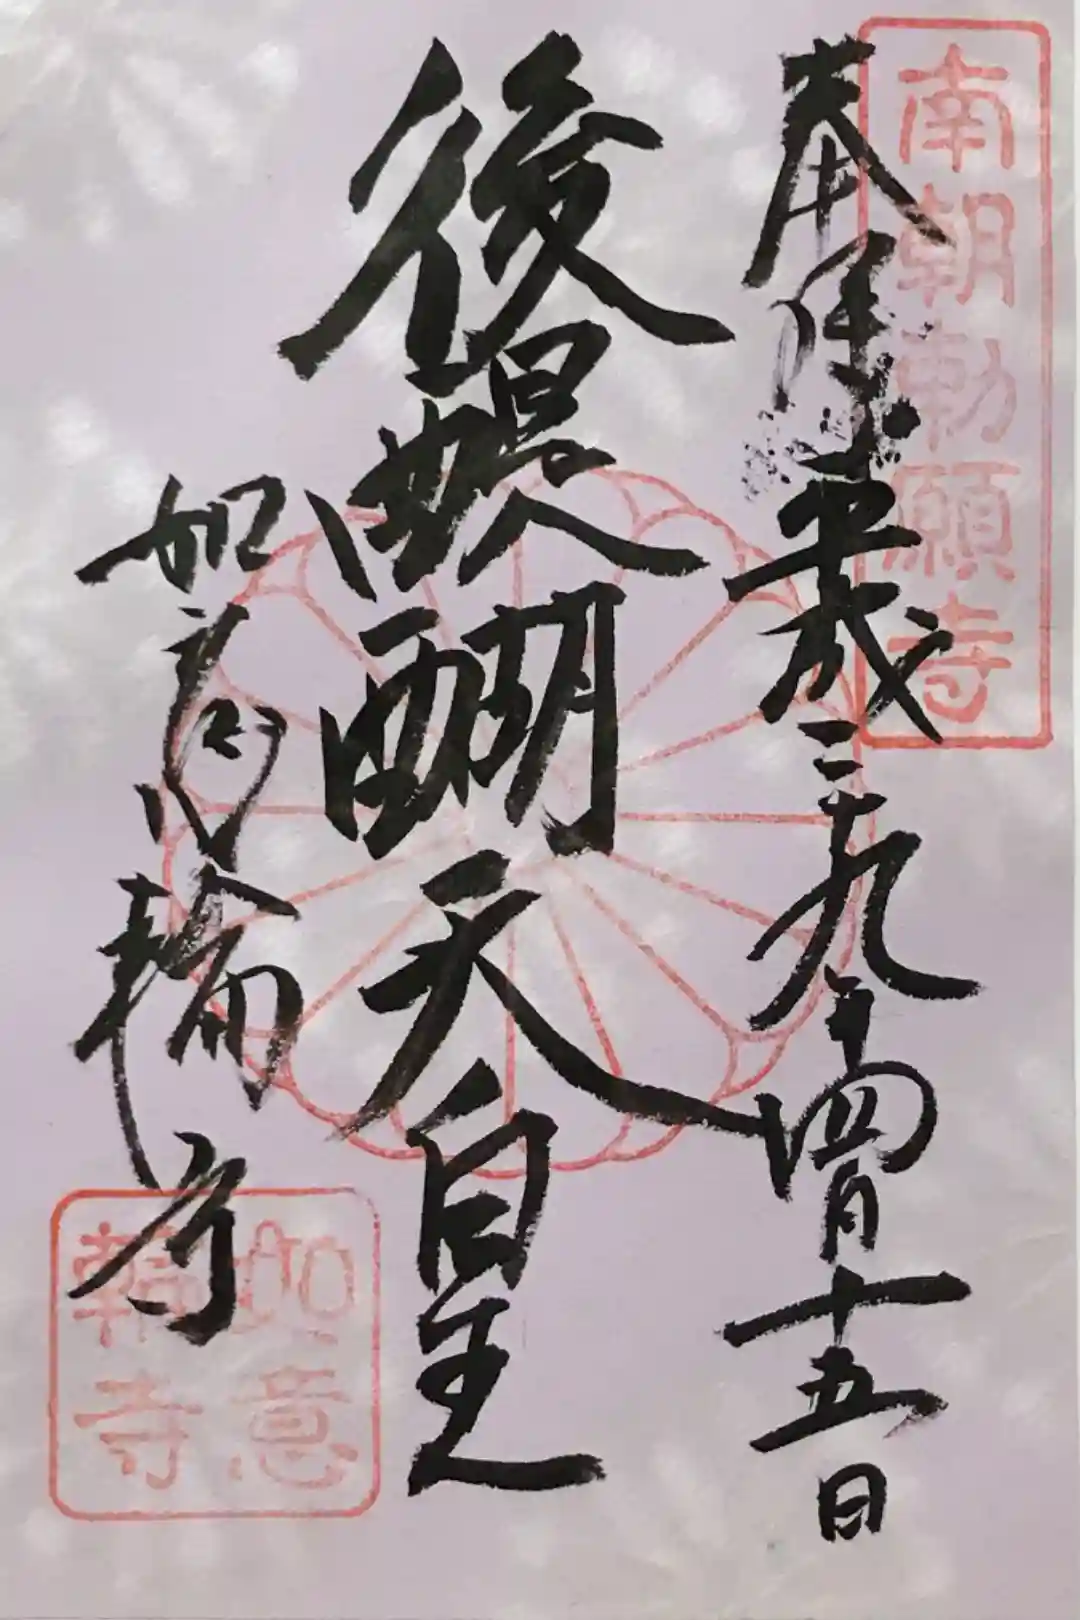 南朝勅願寺
奉拝 平成二十九年四月十五日
後醍醐天皇
如意輪寺
如意輪寺